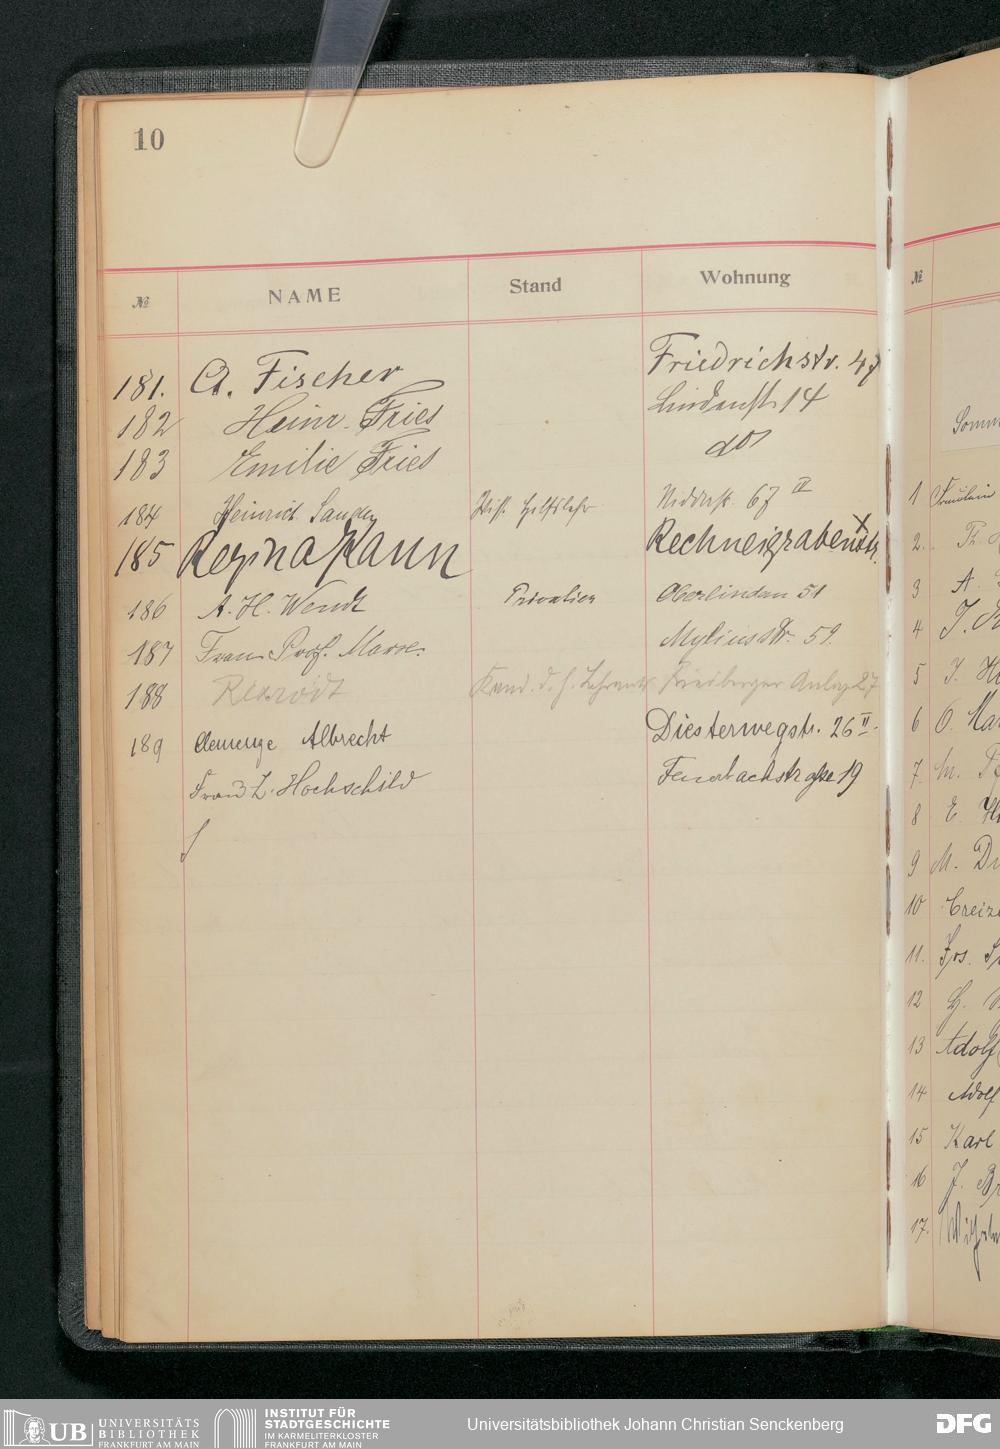 10
№ NAME Stand Wohnung
181. A. Fischer Friedrichstr. 47
182 Heinr. Fries Lindenstr. 14
183 Emilie Fries do
184 Heinrich Hilfslehr. 67 IV
185 Regina Kann Rechneigrabenstr.
186 A. H. Wendt Privatier Oberlindau 51
187 Frau Prof. Marx. Myliusstr. 59.
188 Rexrodt Kand. d. h. Lehramts Friedberger Anlage 27
189 Albrecht Diesterwegstr. 26 II.
Hochschild Feuerbachstraße 19
№
Somm
1 Fräulein
2.
3 A.
4 J.
5 J.
6 O. Mar
7.
8 E.
9 M.
10 Creiz
11. Jos.
12
13 Adolf
14 Adolf
15 Karl
16 J.
17. Wilhelm
UB UNIVERSITÄTS
BIBLIOTHEK
FRANKFURT AM MAIN
INSTITUT FÜR
STADTGESCHICHTE
IM KARMELITERKLOSTER
FRANKFURT AM MAIN
Universitätsbibliothek Johann Christian Senckenberg
DFG